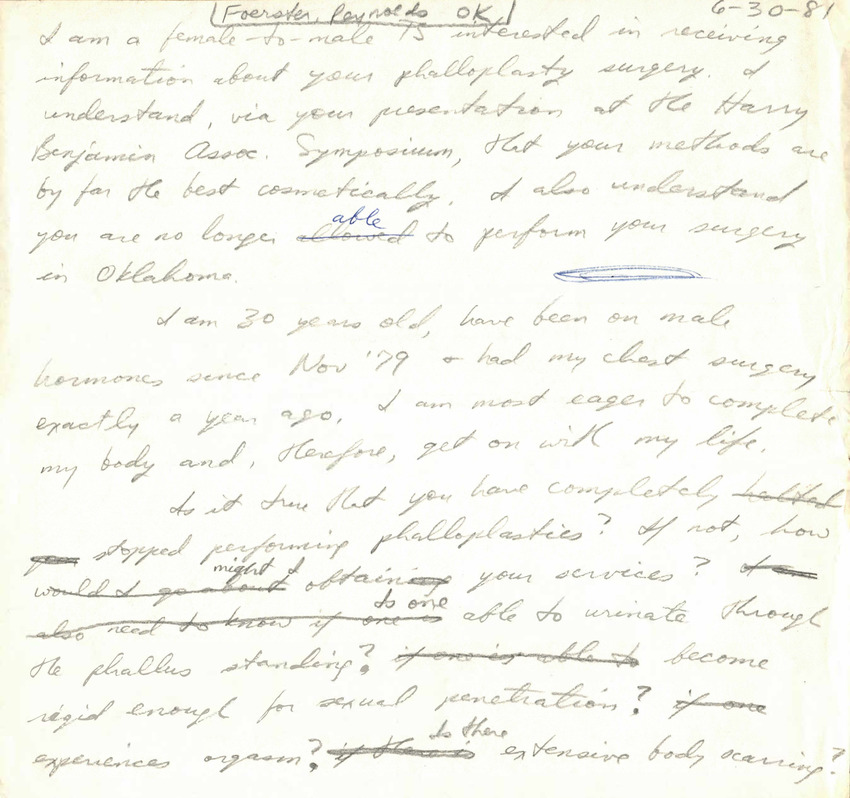 Foerster, Reynolds OK 6-30-81
I am a female-to-male TS interested in receiving
information about your phalloplasty surgery. I
understand, via your presentation at the Harry
Benjamin Assoc. Symposium, that your methods are
by far the best cosmetically. I also understand
able
you are no longer allowed to perform your surgery
in Oklahoma.
I am 30 years old, have been on male
hormones since Nov '79 & had my chest surgery
exactly a year ago. I am most eager to complete
my body and, therefore, get on with my life.
Is it true that you have completely halted
stopped performing phalloplasties? If not, how
might I
would I go about obtaining your services? I
Is one
also need to know if one is able to urinate through
the phallus standing? if one is able to become
rigid enough for sexual penetration? if one
Is there
experiences orgasm? if there is extensive body scarring?